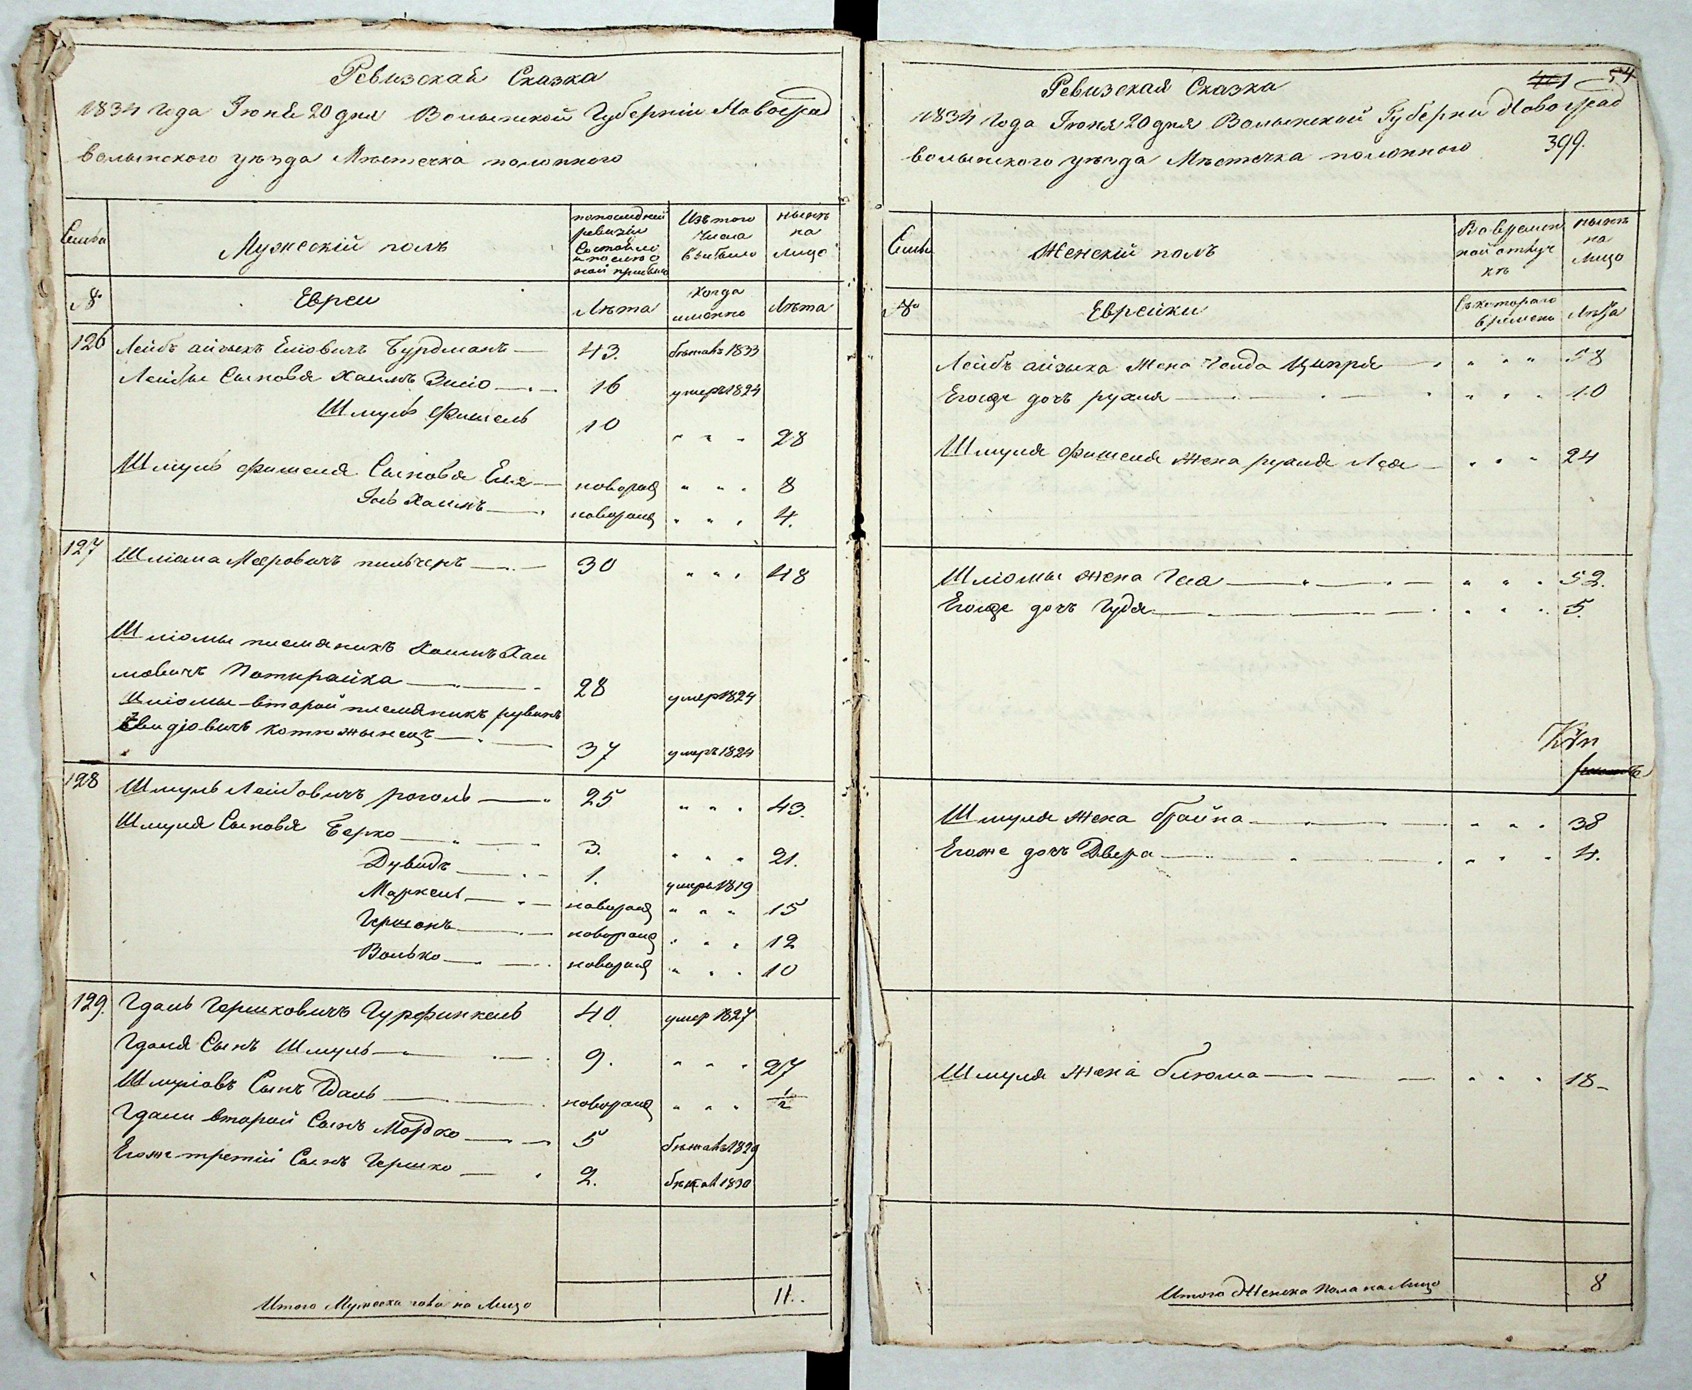 Ревизская Сказка
1834 Года Июня 20 дня Волынской Губерніи Новоград
волынского уезда Местечка полонного
Семьи
Мужескій полъ
Изъ того
Числа
выбыло
ныне
на
лицо
№
Евреи
Лета
Когда
именно
Лета
126 Лейбъ айзыкъ Еліовичъ Бурдманъ 43. бежавъ 1833
Лейбы Сыновья Хаимъ Зисіо 16 умеръ 1824
Шмуль Фишель 10 " " " 28
Шмуль фишеля Сыновья Еля новорож " " " 8
Іось Хаимъ новорож " " " 4.
127 Шліома Мееровичъ пильченъ 30 " " " 48
Шліомы племяникъ Хаимъ Хаи
мовичъ 28 умеръ 1824
Шліомы второй племяникъ рувинъ
37 умеръ 1824
128 Шмуль Лейбовичъ роголь 25 " " " 43.
Шмуля Сыновья Берко 3. " " " 21.
Дувидъ 1. умеръ 1819
Маркель новорож " " " 15
Гершонъ новорож " " " 12
Волько новорож " " " 10
129. Гдаль Гершковичъ Гурфинкель 40 умер 1827
Гдаля Сынъ Шмуль 9. " " " 27
Шмуліовъ Сынъ Гдаль новорож " " " 1/2
Гдали второй Сынъ Мордко 5 бежавъ 1829
Егоже третій Сынъ Гершко 2. бежав 1830
Итого Мужеска пола на Лицо 11..
Ревизская Сказка 54
1834 Года Июня 20 дня Волынской Губерніи Новоград
волынского уезда Местечка полонного 399.
Семьи
Женскій полъ
Во времен
ной отлуч
ке
ныне
на
лицо
№
Еврейки
Съ котораго
времени
Лета
Лейбъ айзыка Жена Голда Ципра " " " 58
Егоже дочь рухля " " " 10
Шмуля фишеля Жена рухля Лея " " " 24
Шліомы жена Гиа " " " 52.
Егоже дочь Гудя " " " 5.
Шмуля Жена брайна " " " 38
Егоже дочь Двера " " " 4.
Шмуля Жена блюма " " " 18
Итого Женска Пола на Лицо 8